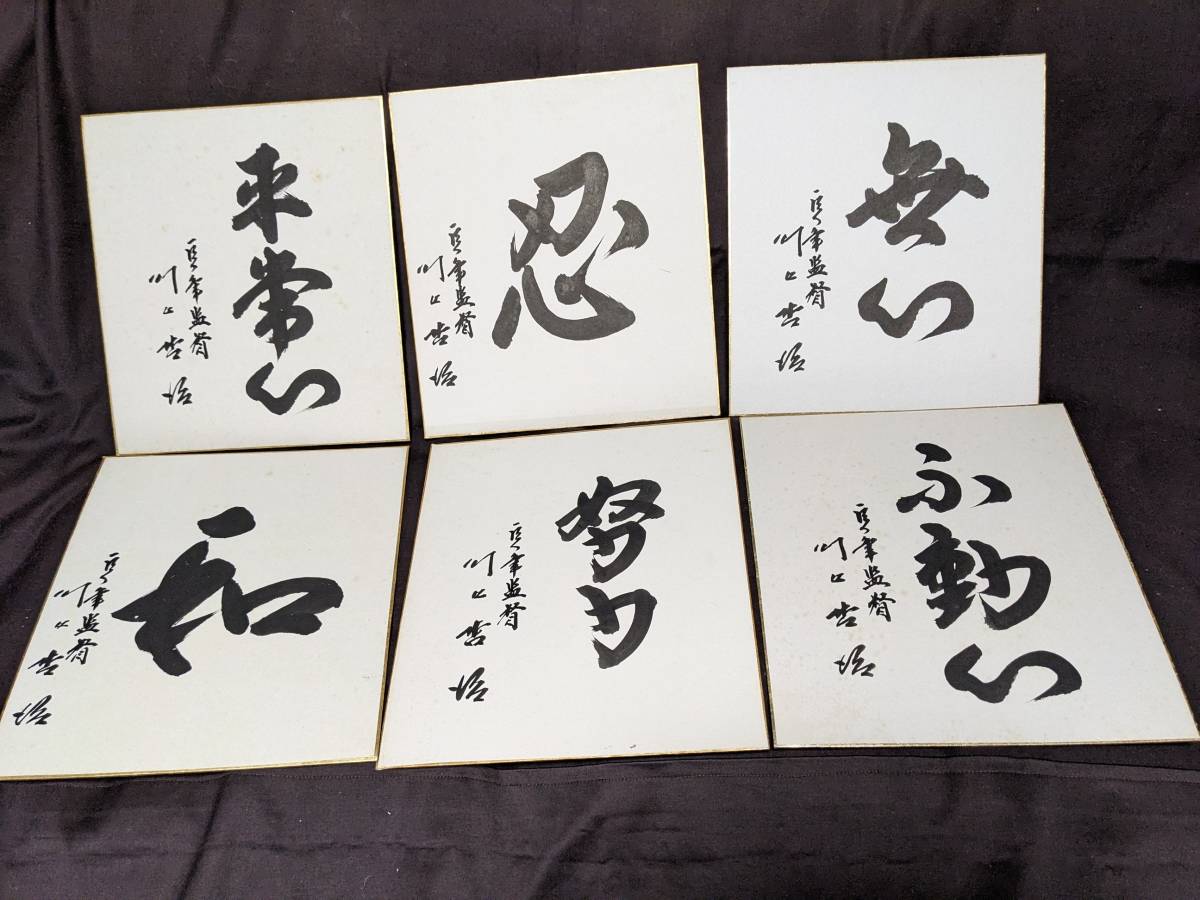 平常心
巨人軍監督
川上哲治
忍
巨人軍監督
川上哲治
無心
巨人軍監督
川上哲治
和
巨人軍監督
川上哲治
努力
巨人軍監督
川上哲治
不動心
巨人軍監督
川上哲治